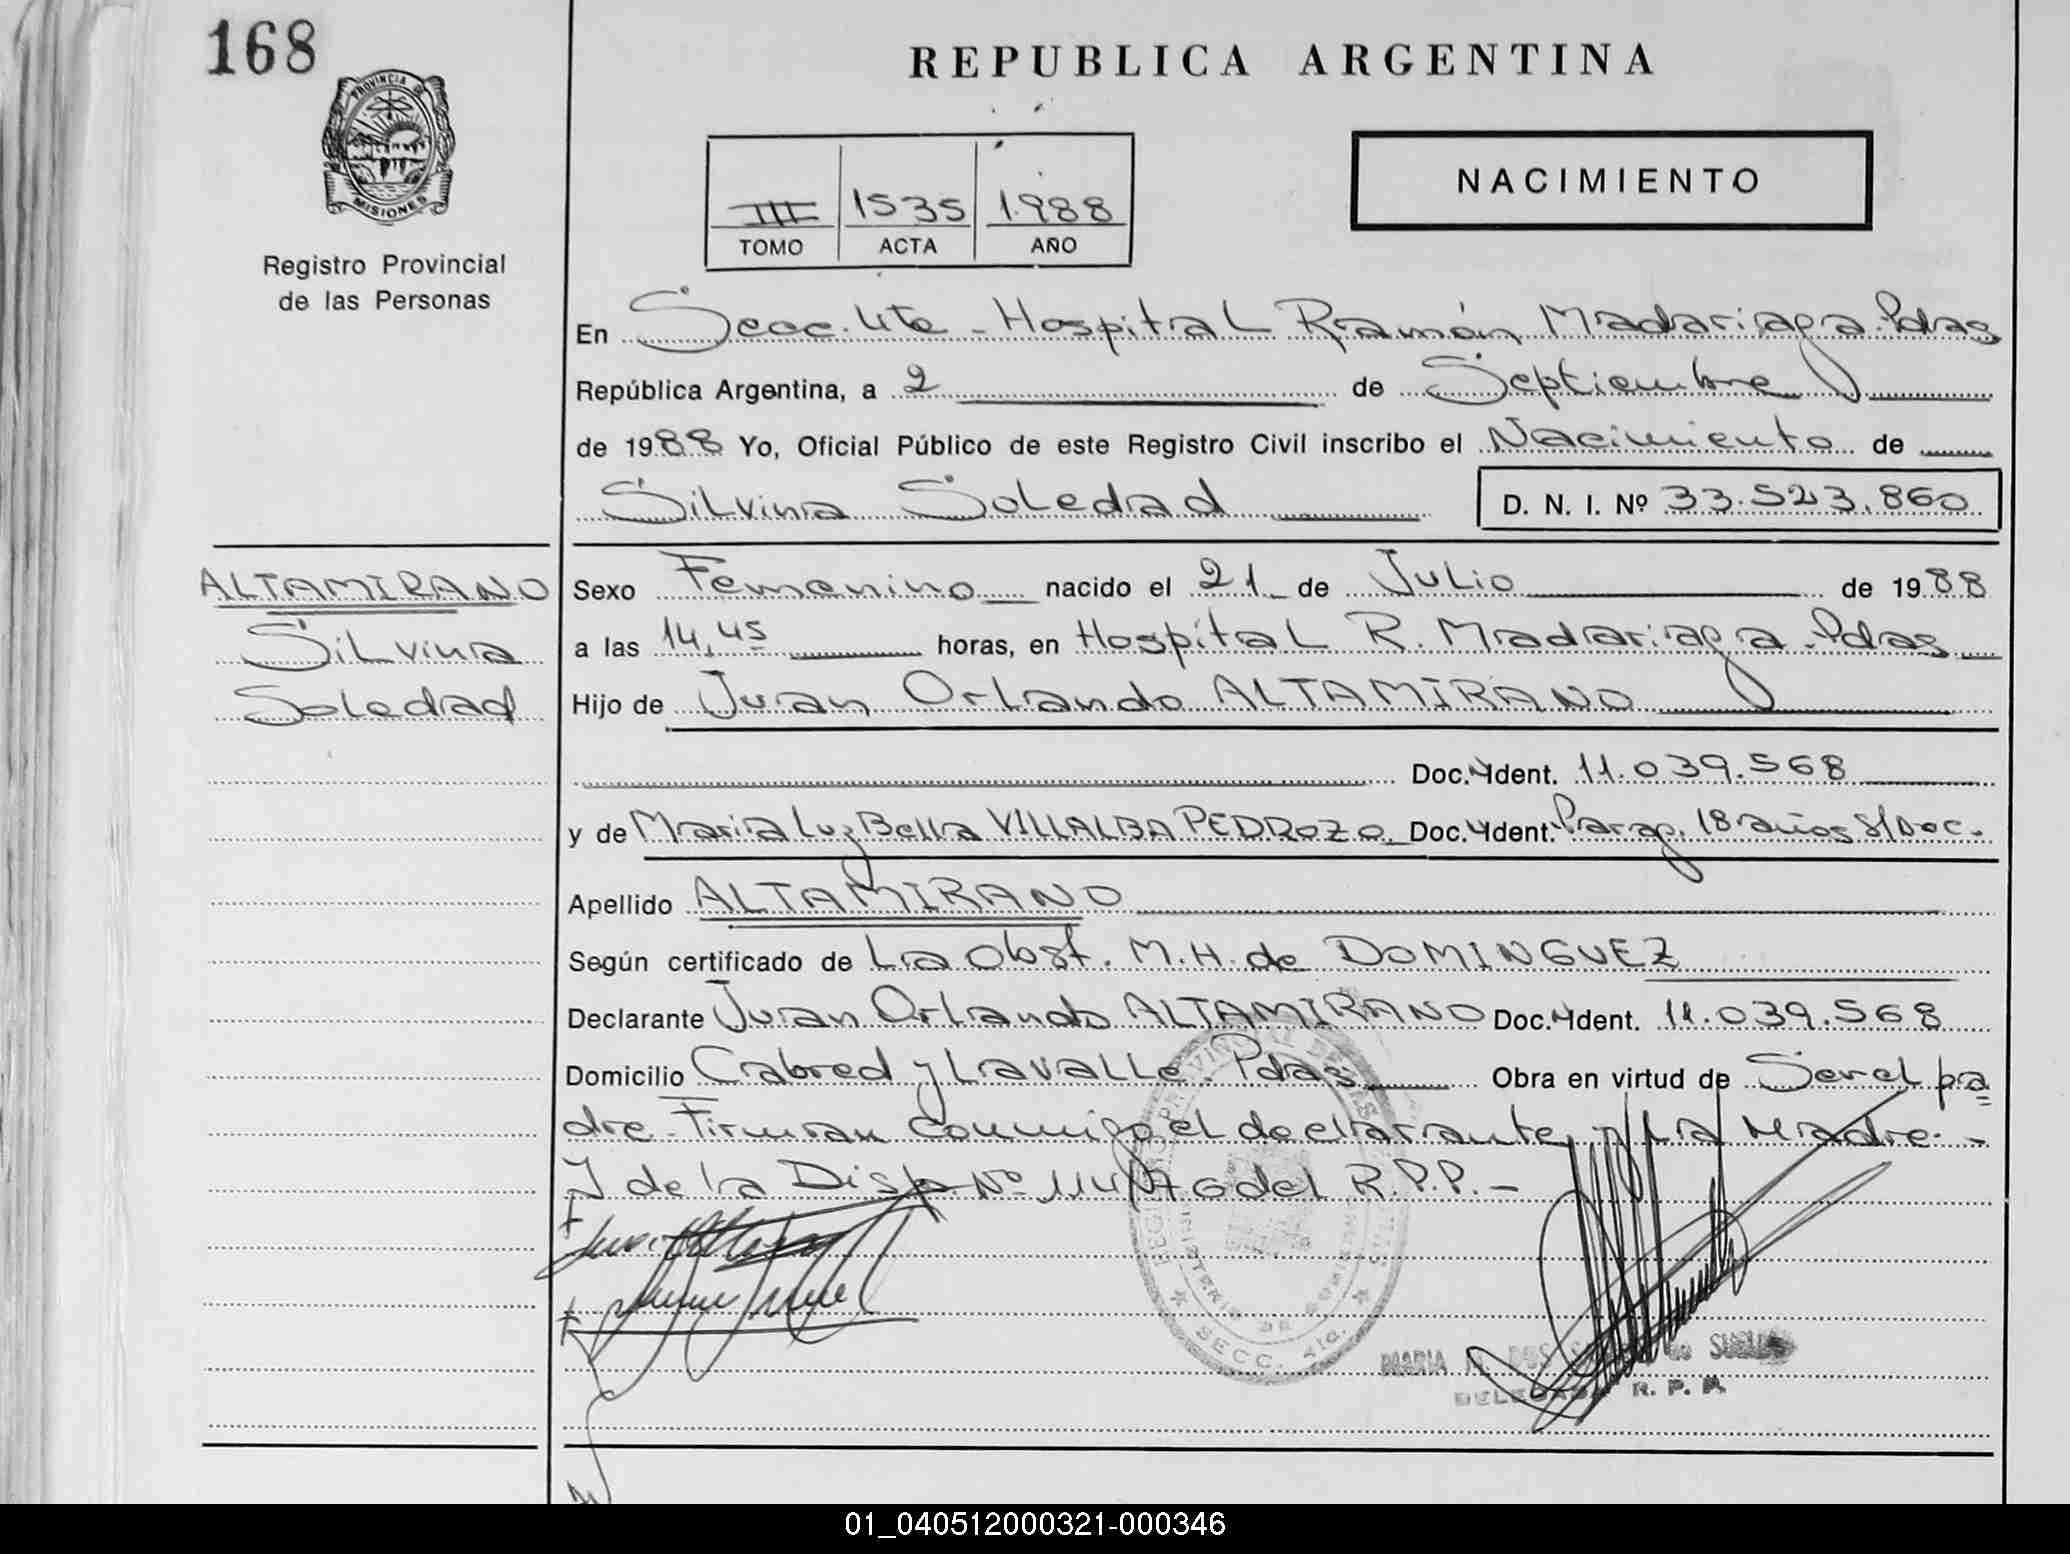 168
REPUBLICA ARGENTINA
PROVINCIA DE
MISIONES
Registro Provincial
de las Personas
NACIMIENTO
III 1535 1.988
TOMO ACTA AÑO
En Secc. 4ta - Hospital Ramón Madariaga. Pdas
República Argentina, a 2 de Septiembre
de 1988 Yo, Oficial Público de este Registro Civil inscribo el Nacimiento de
Silvina Soledad D. N. I. Nº 33.523.860
ALTAMIRANO
Silvina
Soledad
Sexo Femenino nacido el 21 de Julio de 1988
a las 14,45 horas, en Hospital R. Madariaga. Pdas
Hijo de Juan Orlando ALTAMIRANO
Doc. Ident. 11.039.568
y de Maria Luz Bella VILLALBA PEDROZO Doc. Ident. Parag. 18 años S/Doc.
Apellido ALTAMIRANO
Según certificado de La Obst. M.H. de DOMINGUEZ
Declarante Juan Orlando ALTAMIRANO Doc. Ident. 11.039.568
Domicilio Cabred y Lavalle. Pdas Obra en virtud de Ser el pa
dre. Firman conmigo el declarante y La Madre. -
Y de la Disp. Nº 114/76 del R.P.P. -
SECC. 4ta.
MARIA
R. P. P.
01_040512000321-000346